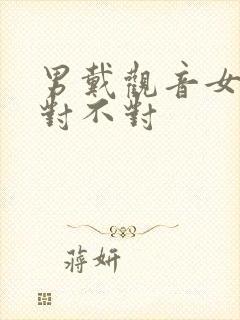 男戴觀音女
對不對
蔣妍